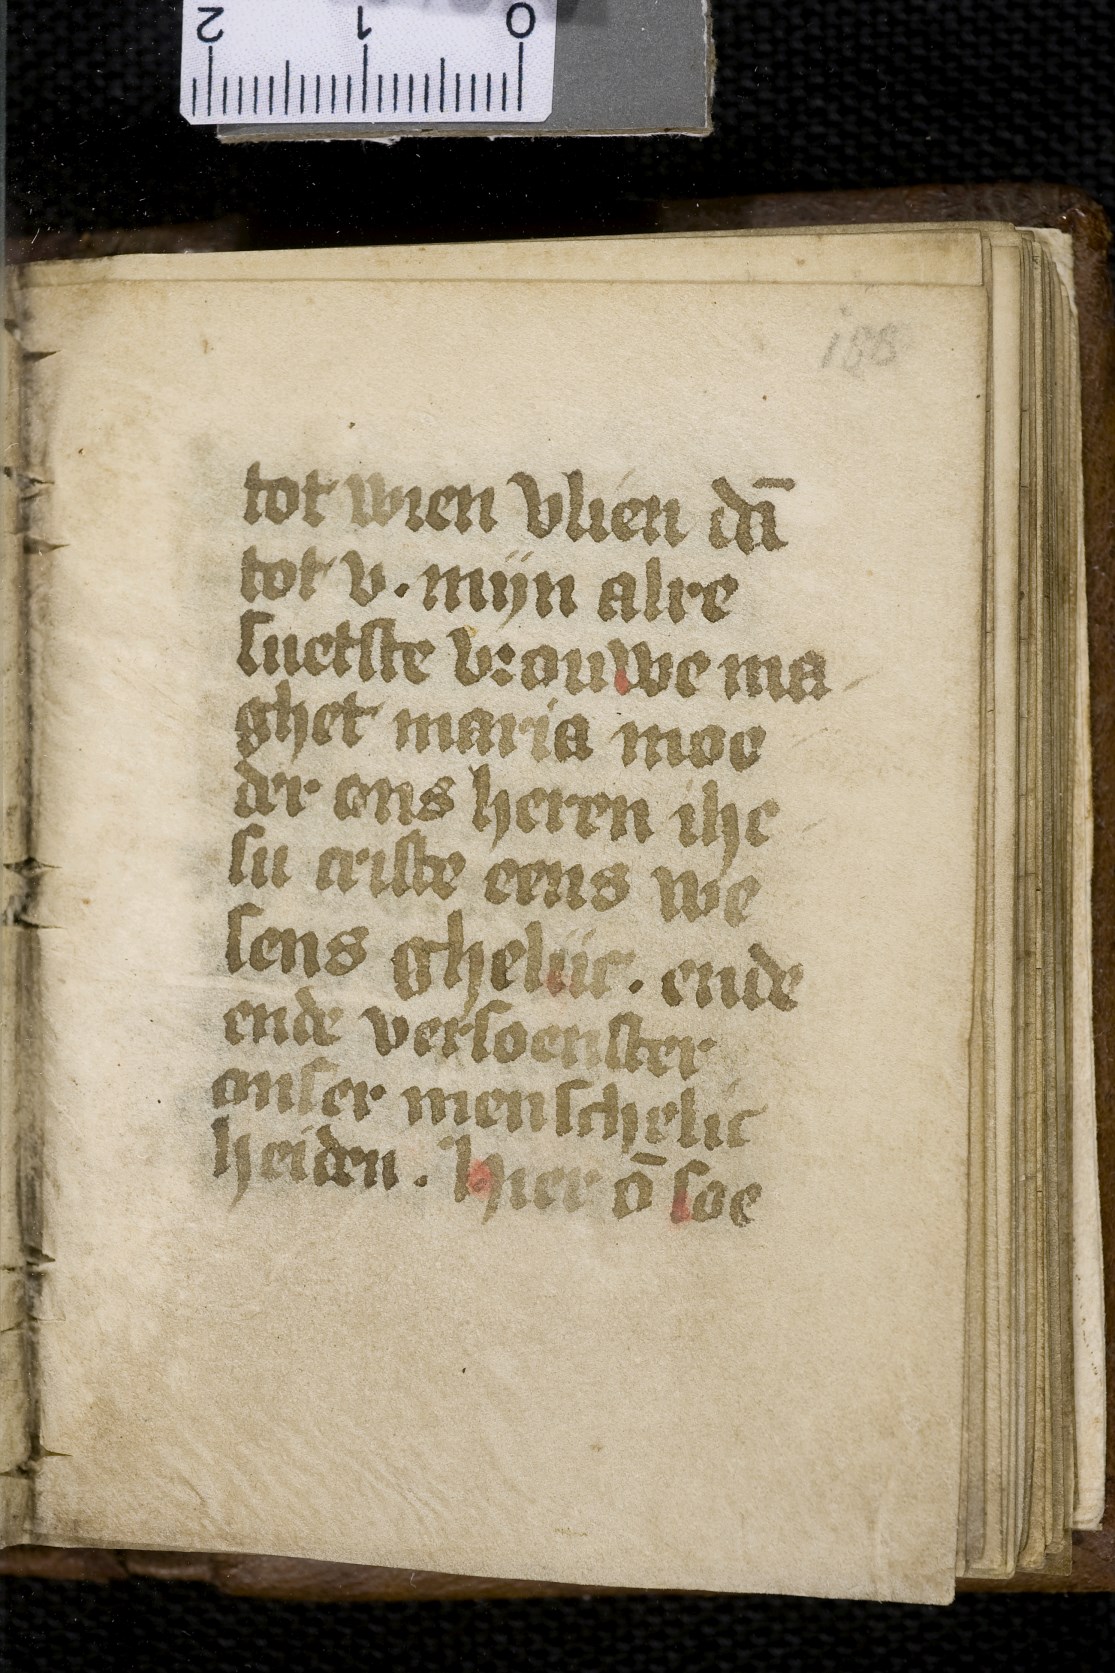 2 1 0
188
tot wien vlien dā
tot v. mijn alre
suetste vrouwe ma
ghet maria moe
der ons heren ihe
su criste eens we
sens gheliic. ende
ende versoenster
onser menschelic
heiden. Hier ō soe